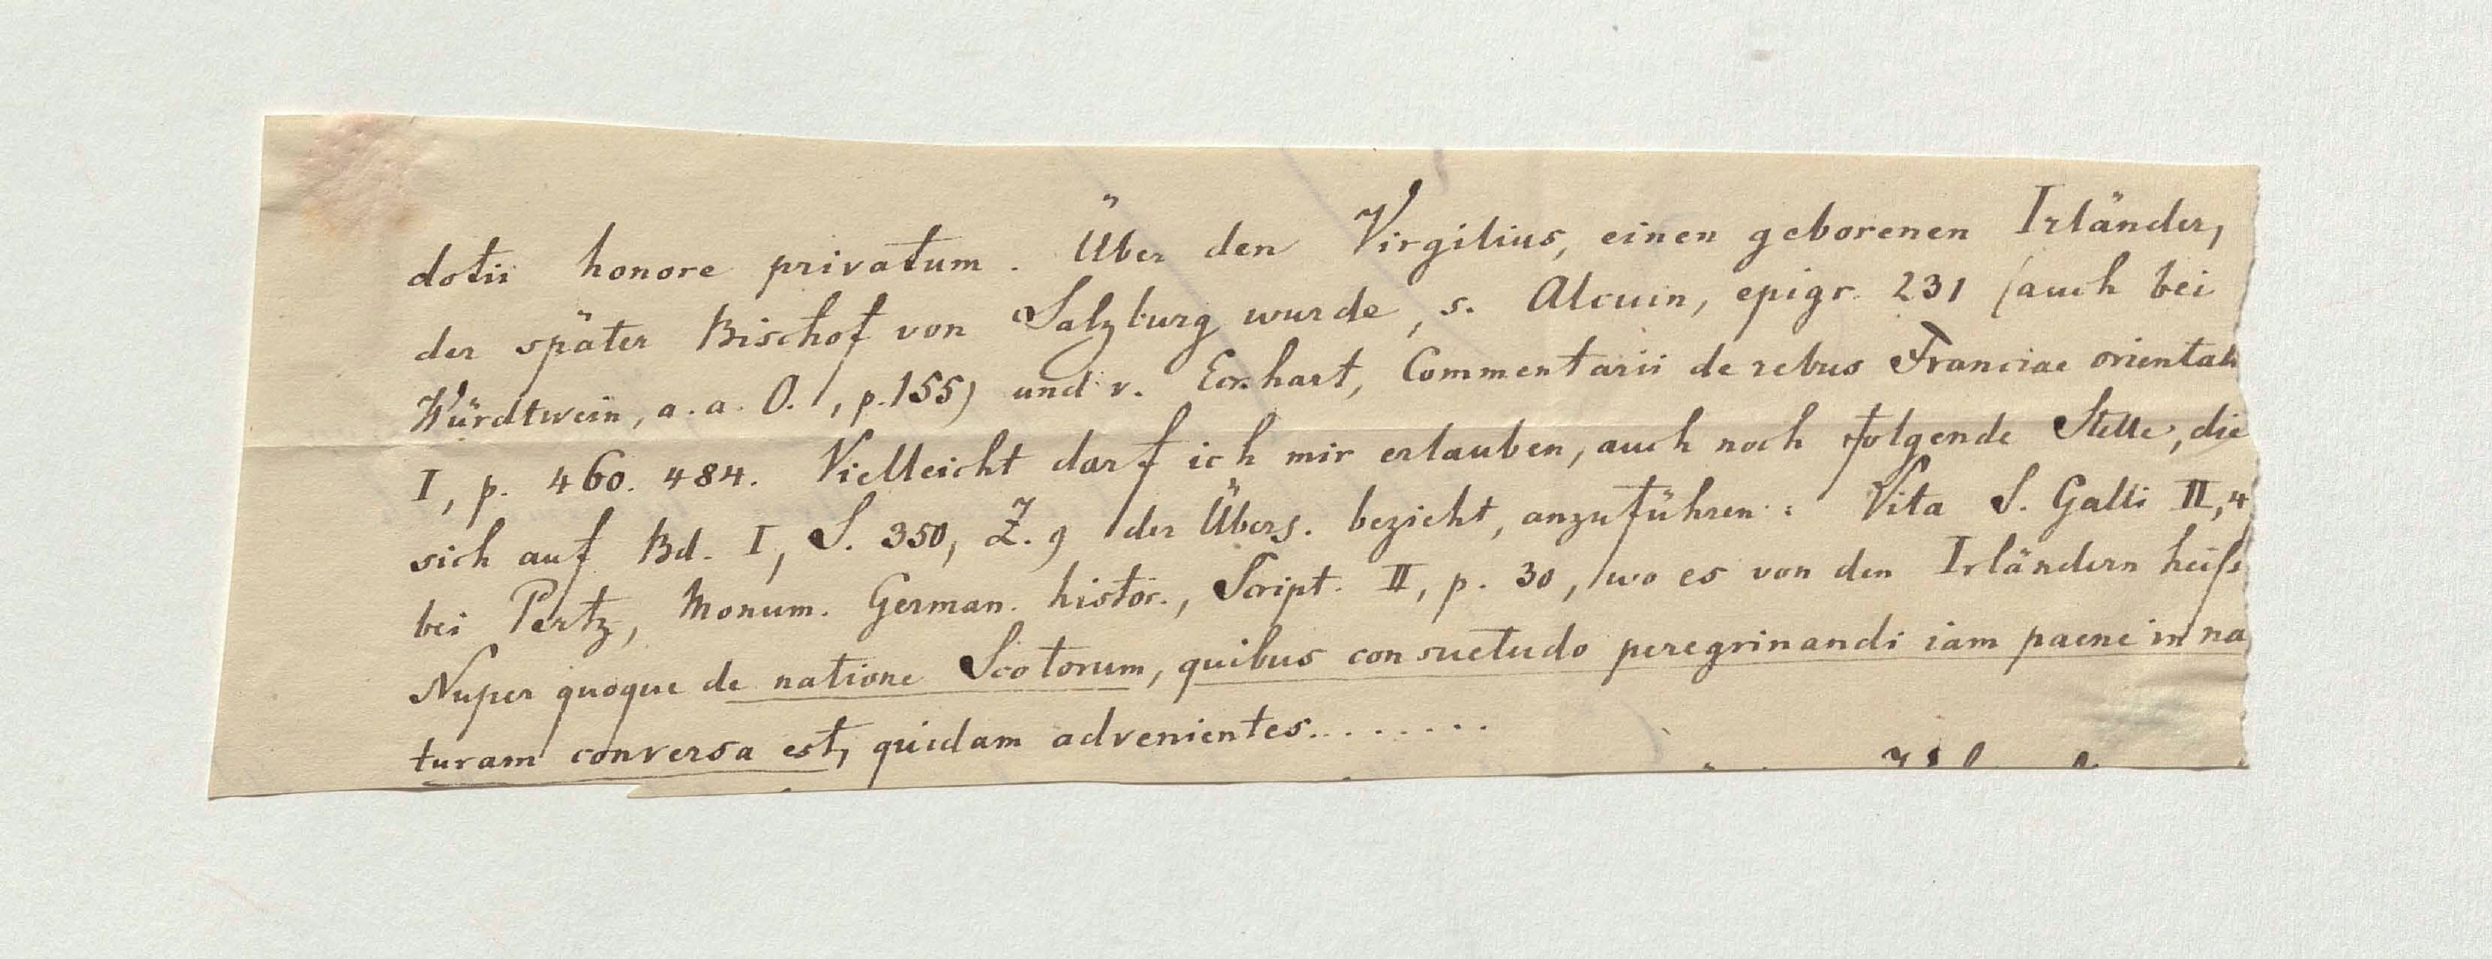 dotii honore privatum. Über den Virgilius, einen geborenen Irländer,
der später Bischof von Salzburg wurde, s. Alcuin, epigr. 231 (auch bei
Würdtwein, a. a. O., p. 155) und v. Eckhart, Commentarii de rebus Franciae oriental
I, p. 460. 484. Vielleicht darf ich mir erlauben, auch noch folgende Stelle, die
sich auf Bd. I, S. 350, Z. 9 der Übers. bezieht, anzuführen: Vita S. Galli II, 4
bei Pertz, Monum. German. histor., Script. II, p. 30, wo es von den Irländern heißt
Nuper quoque de natione Scotorum, quibus consuetudo peregrinandi iam paene in na
turam conversa est, quidam advenientes........